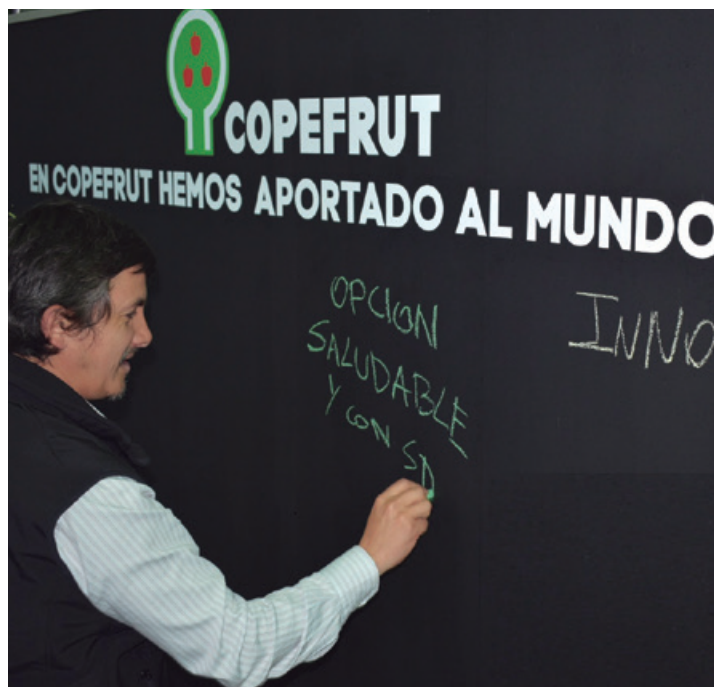 COPEFRUT
EN COPEFRUT HEMOS APORTADO AL MUNDO
OPCION
SALUDABLE
Y CON
INNO